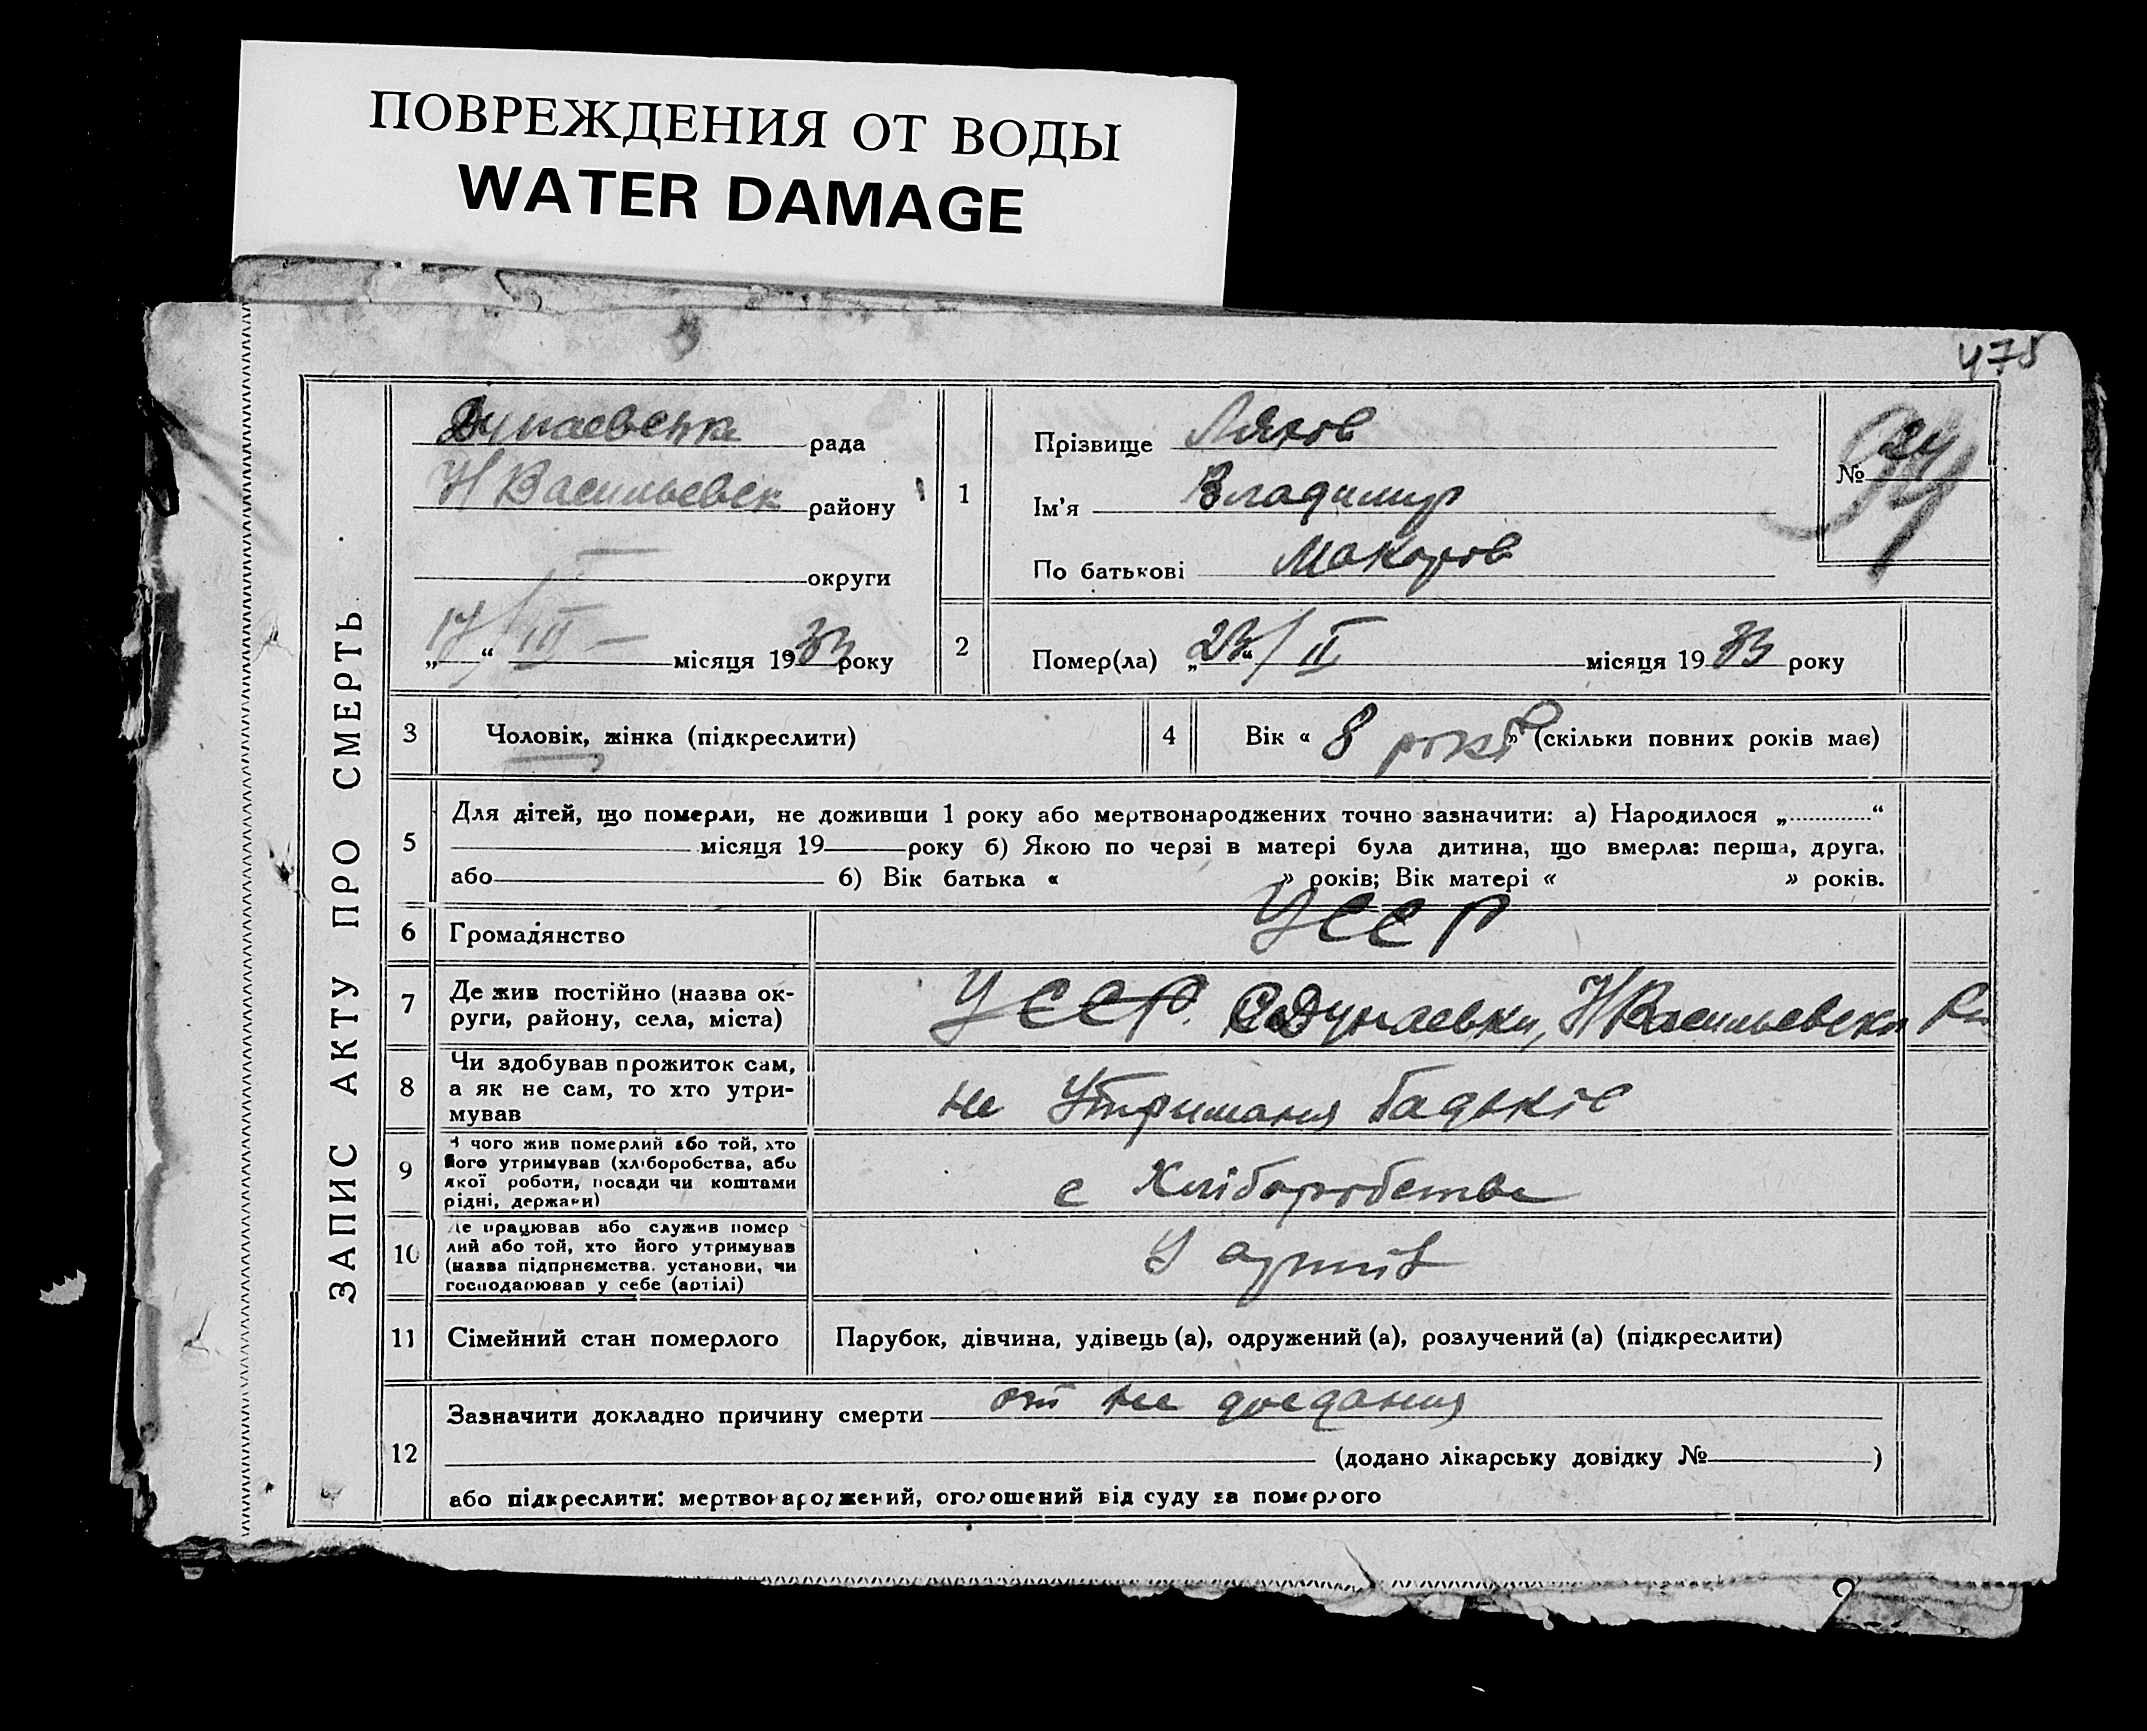 ПОВРЕЖДЕНИЯ ОТ ВОДЫ
WATER DAMAGE
475
ЗАПИС АКТУ ПРО СМЕРТЬ
Дунаевська рада
Н Васильевск району
округи
„17/“ III – місяця 1933 року
1
Прізвище Ляхов
Ім'я Владимир
По батькові Макаров
№ 24
94
2
Помер(ла) „23/“ II місяця 1933 року
3
Чоловік, жінка (підкреслити)
4
Вік « 8 років » (скільки повних років має)
5
Для дітей, що померли, не доживши 1 року або мертвонароджених точно зазначити: а) Народилося „ “
місяця 19 року б) Якою по черзі в матері була дитина, що вмерла: перша, друга,
або б) Вік батька « » років; Вік матері « » років.
6
Громадянство
УССР
7
Де жив постійно (назва ок-
руги, району, села, міста)
УССР. С Дунаевки, Н Васильевска
8
Чи здобував прожиток сам,
а як не сам, то хто утри-
мував
на Утриманя бадьків
9
З чого жив померлий або той, хто
його утримував (хліборобства, або
якої роботи, посади чи коштами
рідні, держави)
с Хліборобства
10
Де працював або служив помер
лий або той, хто його утримував
(назва підприємства, установи, чи
господарював у себе (артілі)
У артілі
11
Сімейний стан померлого
Парубок, дівчина, удівець (а), одружений (а), розлучений (а) (підкреслити)
12
Зазначити докладно причину смерти от не доедания
(додано лікарську довідку № )
або підкреслити: мертвонароджений, оголошений від суду за померлого